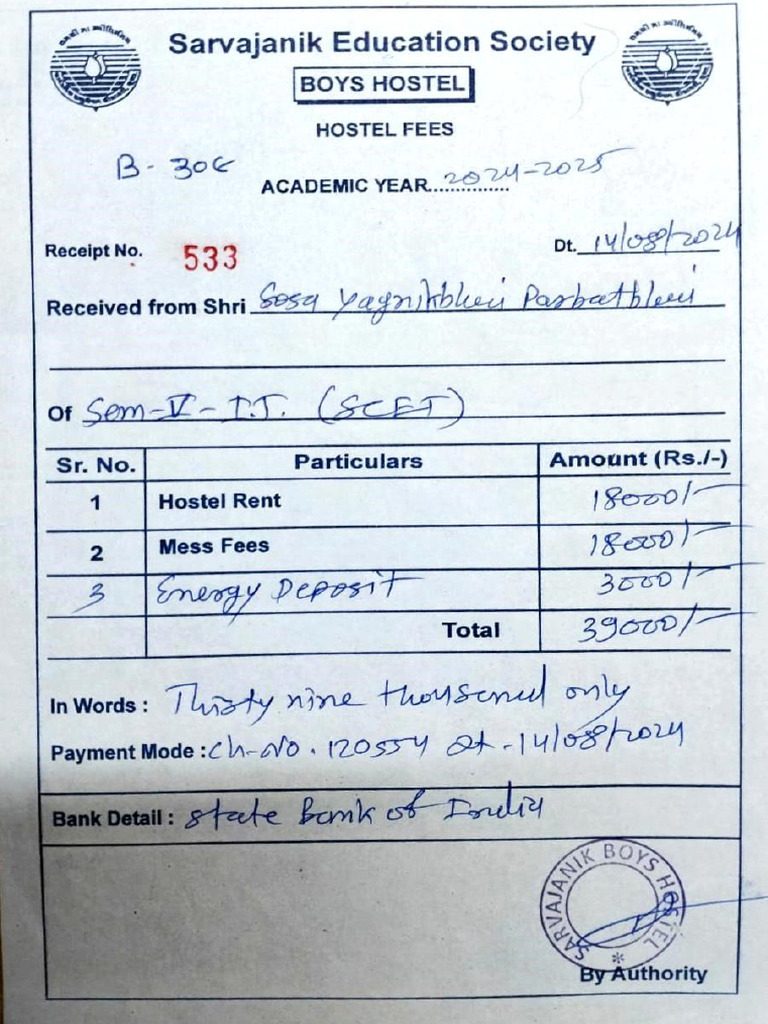 Sarvajanik Education Society
BOYS HOSTEL
HOSTEL FEES
B-306
ACADEMIC YEAR..............2024-2025
Receipt No. 533
Dt. 14/08/2024
Received from Shri Sosa Yagnikbhai Parbatbhai
Of Sem-V-I.T. (SCET)
Sr. No. Particulars Amount (Rs./-)
1 Hostel Rent 18000/-
2 Mess Fees 18000/-
3 Energy Deposit 3000/-
Total 39000/-
In Words : Thirty nine thousand only
Payment Mode : Ch-No. 120554 dt-14/08/2024
Bank Detail : State Bank of India
SARVAJANIK BOYS HOSTEL *
By Authority